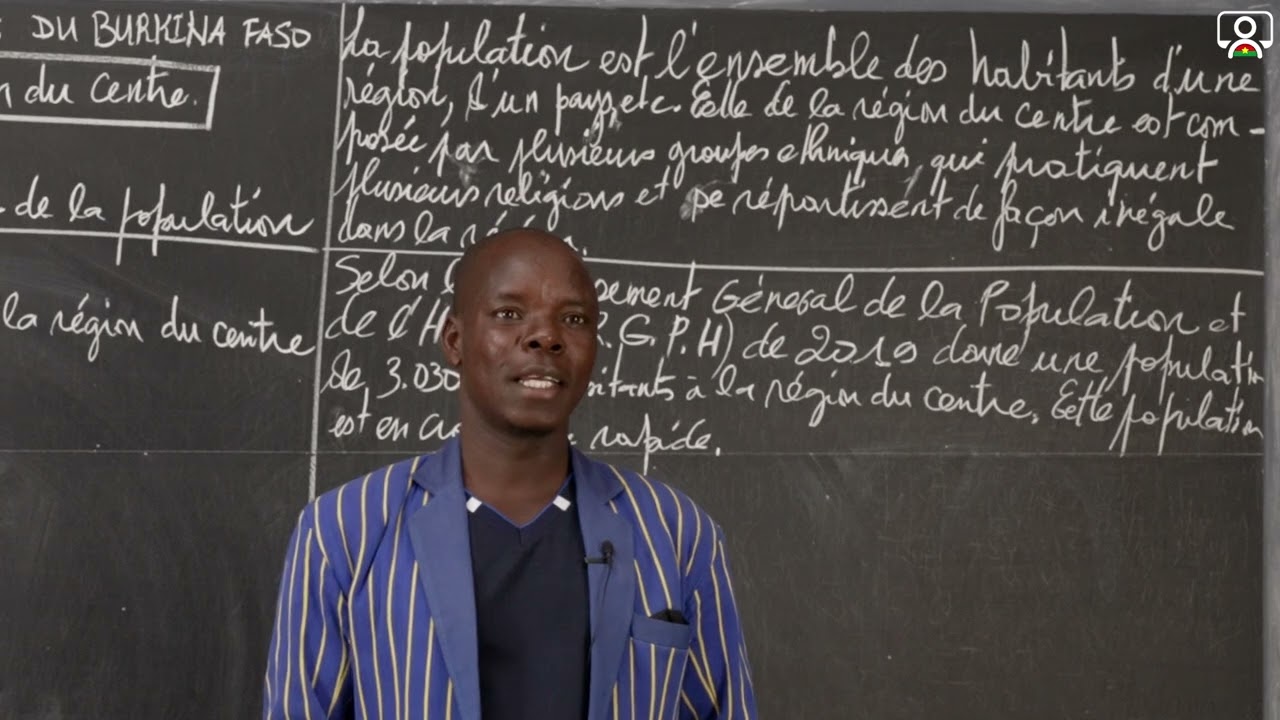 DU BURKINA FASO
du Centre.
de la population
la région du centre
La population est l'ensemble des habitants d'une
région, d'un pays, etc. Celle de la région du centre est com-
posée par plusieurs groupes ethniques, qui pratiquent
plusieurs religions et se répartissent de façon inégale
dans la
Selon pement Général de la Population et
de l'H R.G.P.H) de 2019 donne une population
de 3.030 bitants à la région du centre. Cette population
est en rapide.